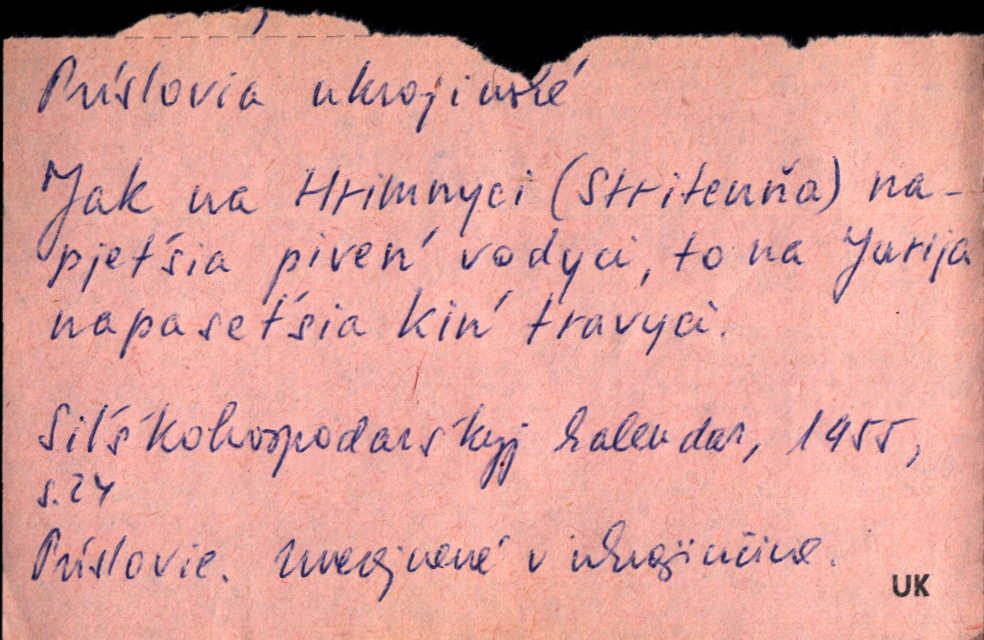 Príslovia ukrajinské
Jak na Hrimnyci (Stritenňa) na-
pjeťsia piveń vodyci, to na Jurija
napaseťsia kiń travyci.
Siľśkohospodarśkyj kalendar, 1955,
s. 24
Príslovie. Uverejnené v ukrajinčine.
UK